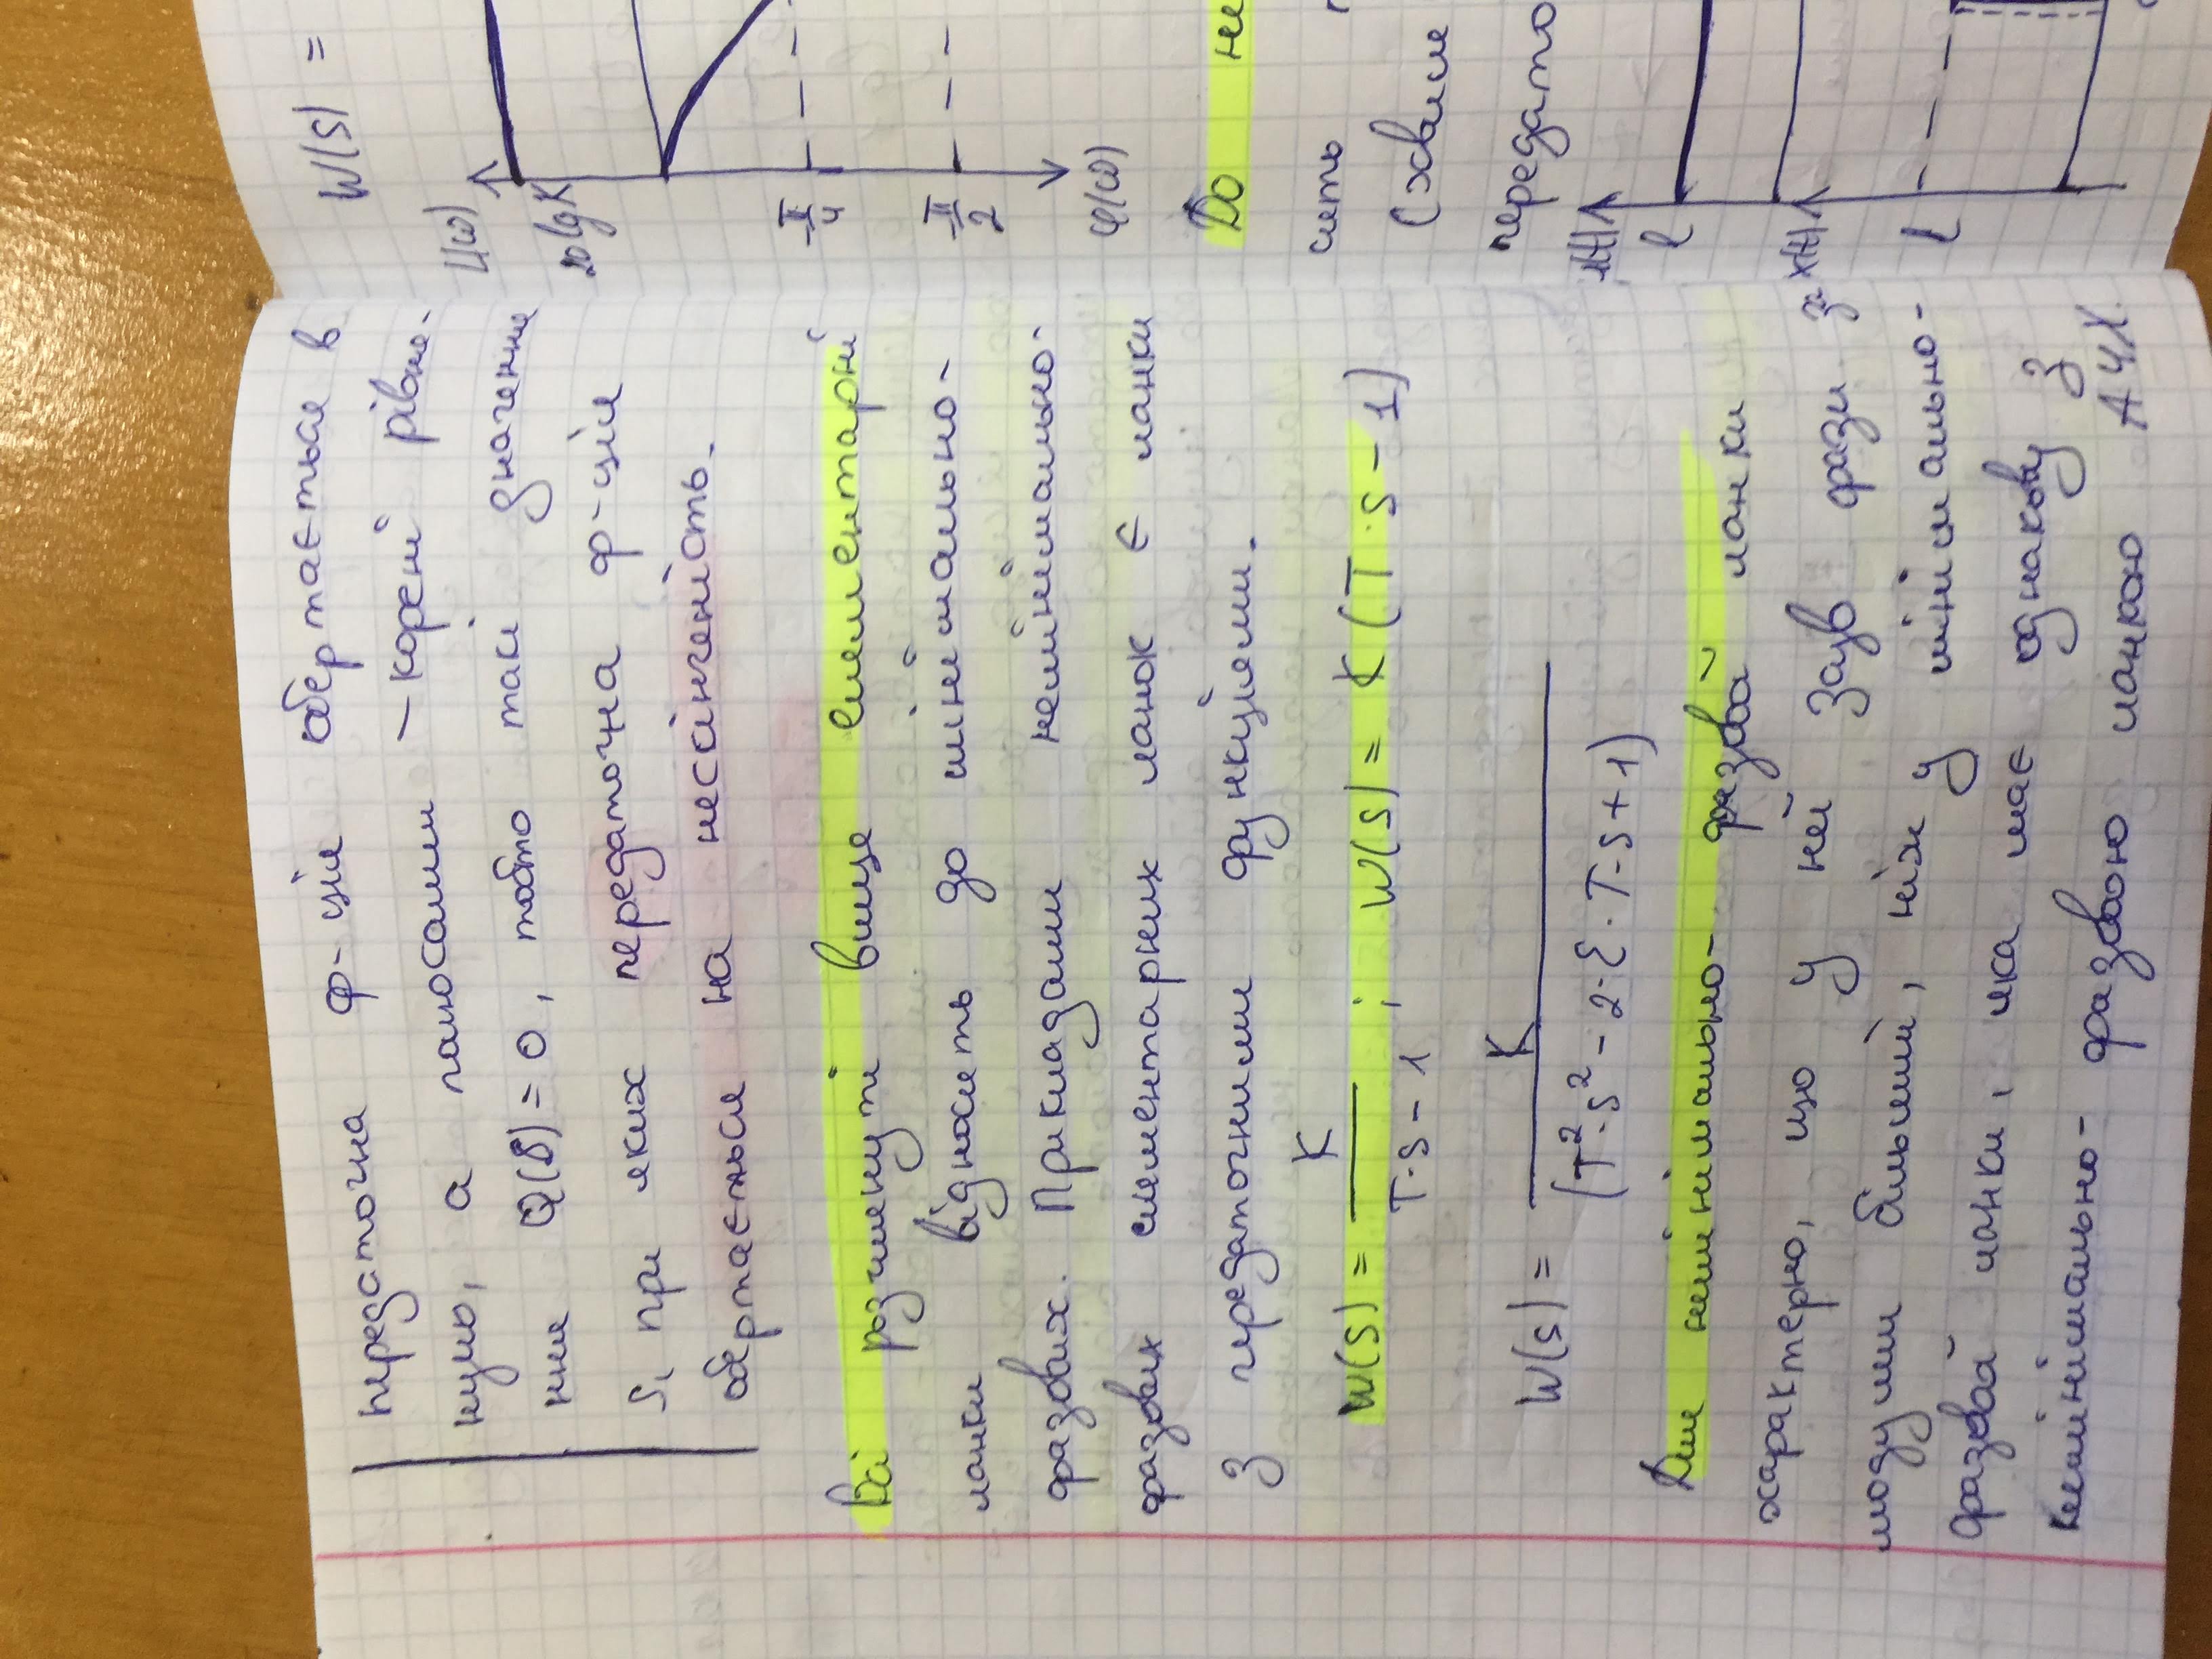 передаточна ф-ція обертається в
нулю, а полюсами – корені рівня-
ння Q(S) = 0, тобто такі значення
S, при яких передаточна ф-ція
обертається на нескінченність.
Всі розглянуті вище елементарні
ланки відносять до мінімально-
фазових. Прикладами немінімально-
фазових елементарних ланок є ланки
з передаточними функціями.
W(s) = K / (T·s – 1) ; W(s) = K (T·s – 1)
W(s) = K / (T²·s² – 2·ξ·T·s + 1)
Для немінімально- фазової ланки
характерно, що у ній зсув фази за
модулем більший, ніж у мінімально-
фазовой ланки, яка має однакову з
немінімально- фазовою ланкою АЧХ.
W(S) =
L(ω)
20lgK
π/4
π/2
φ(ω)
До не
сить
(хвиле
передато
1(t)
1
x(t)
1